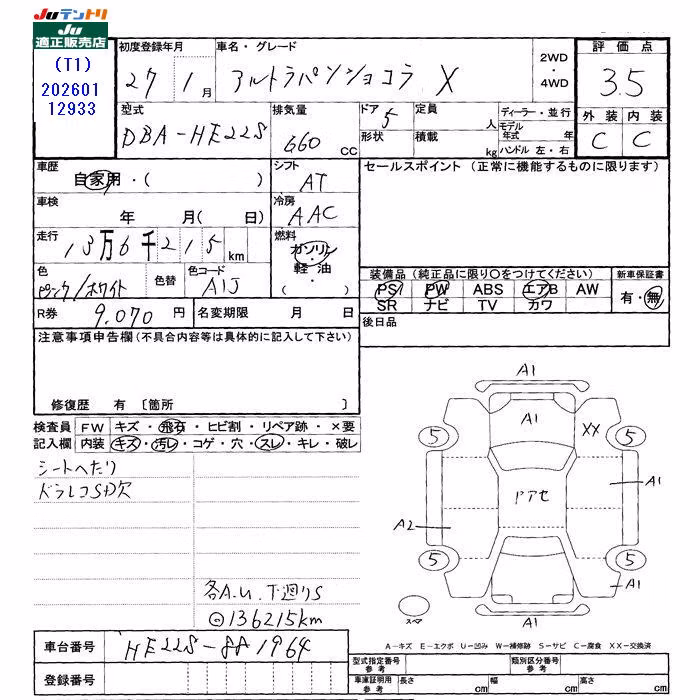 JUテントリ
JU
適正販売店
(T1)
202601
12933
初度登録年月
27 1 月
車名・グレード
アルトラパンショコラ X
2WD
・
4WD
評価点
3.5
型式
DBA-HE22S
排気量
660 cc
ドア 5
形状
定員 人
積載 kg
ディーラー・並行
モデル年式 年
ハンドル 左・右
外装 内装
C C
車歴
自家用・( )
シフト
AT
セールスポイント (正常に機能するものに限ります)
車検
年 月( 日)
冷房
AAC
走行
13万6千215 km
燃料
ガソリン
・
軽油
・
( )
色
ピンク/ホワイト
色替
色コード
A1J
装備品 (純正品に限り○をつけてください)
新車保証書
PS PW ABS エアB AW
SR ナビ TV カワ
有・無
R券 9,070 円
名変期限 月 日
後日品
注意事項申告欄(不具合内容等は具体的に記入して下さい)
修復歴 有 〔箇所 〕
検査員 FW キズ・飛石・ヒビ割・リペア跡・×要
記入欄 内装 キズ・汚レ・コゲ・穴・スレ・キレ・破レ
シートへたり
ドラレコSD欠
各A.U.下廻りS
⊙136215km
A1
A1
5
XX
5
A1
ドアセ
A2
5
5
A1
スペア
A1
A-キズ E-エクボ U-凹み W-補修跡 S-サビ C-腐食 XX-交換済
車台番号
HE22S-881964
登録番号
型式指定番号
参考
類別区分番号
参考
車庫証明用
参考
長さ cm
幅 cm
高さ cm